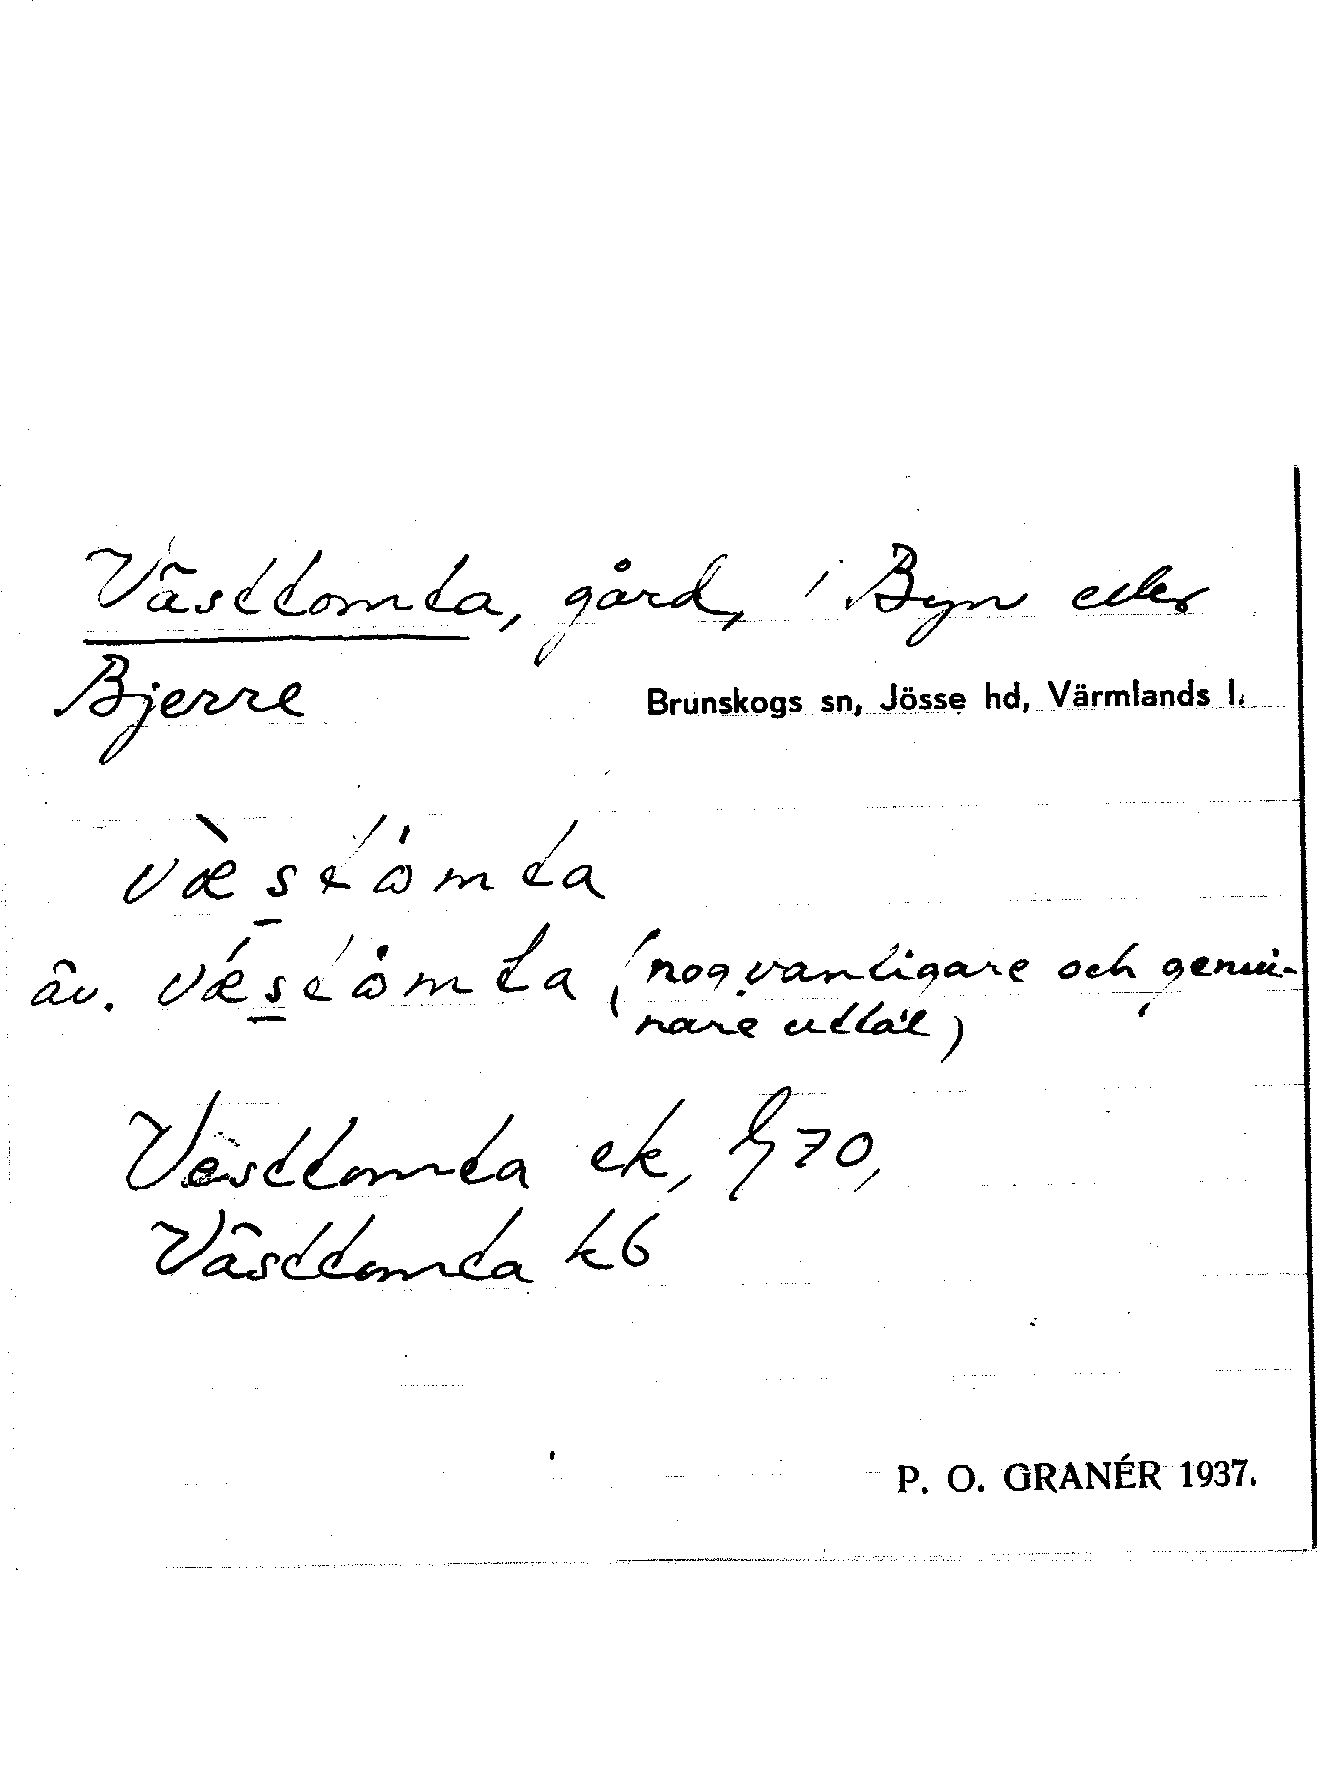 Västtomta, gård, i Byn eller
Bjerre
Brunskogs sn, Jösse hd, Värmlands l.
væ̀s̱tòmta
äv. vǽs̱tåmta (nog vanligare och genui-
nare uttal)
Västtomta ek, 70,
Västtomta k6
P. O. GRANÉR 1937.